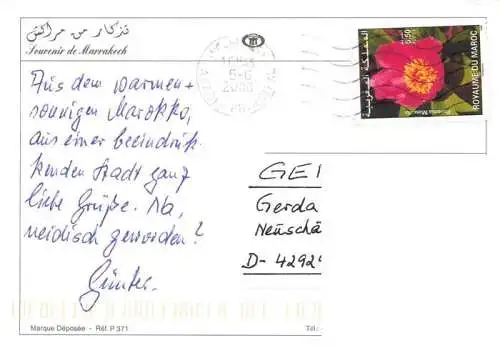 تذكار من مراكش
Souvenir de Marrakech
Aus dem warmen +
sonnigen Marokko,
aus einer beeindruk-
kenden Stadt ganz
liebe Grüße. Na,
neidisch geworden?
Günter.
6.50
ROYAUME DU MAROC
المملكة المغربية
2000
GE
Gerda
Neuschä
D-4292
Marque Déposée - Réf. P 371
Tél.: